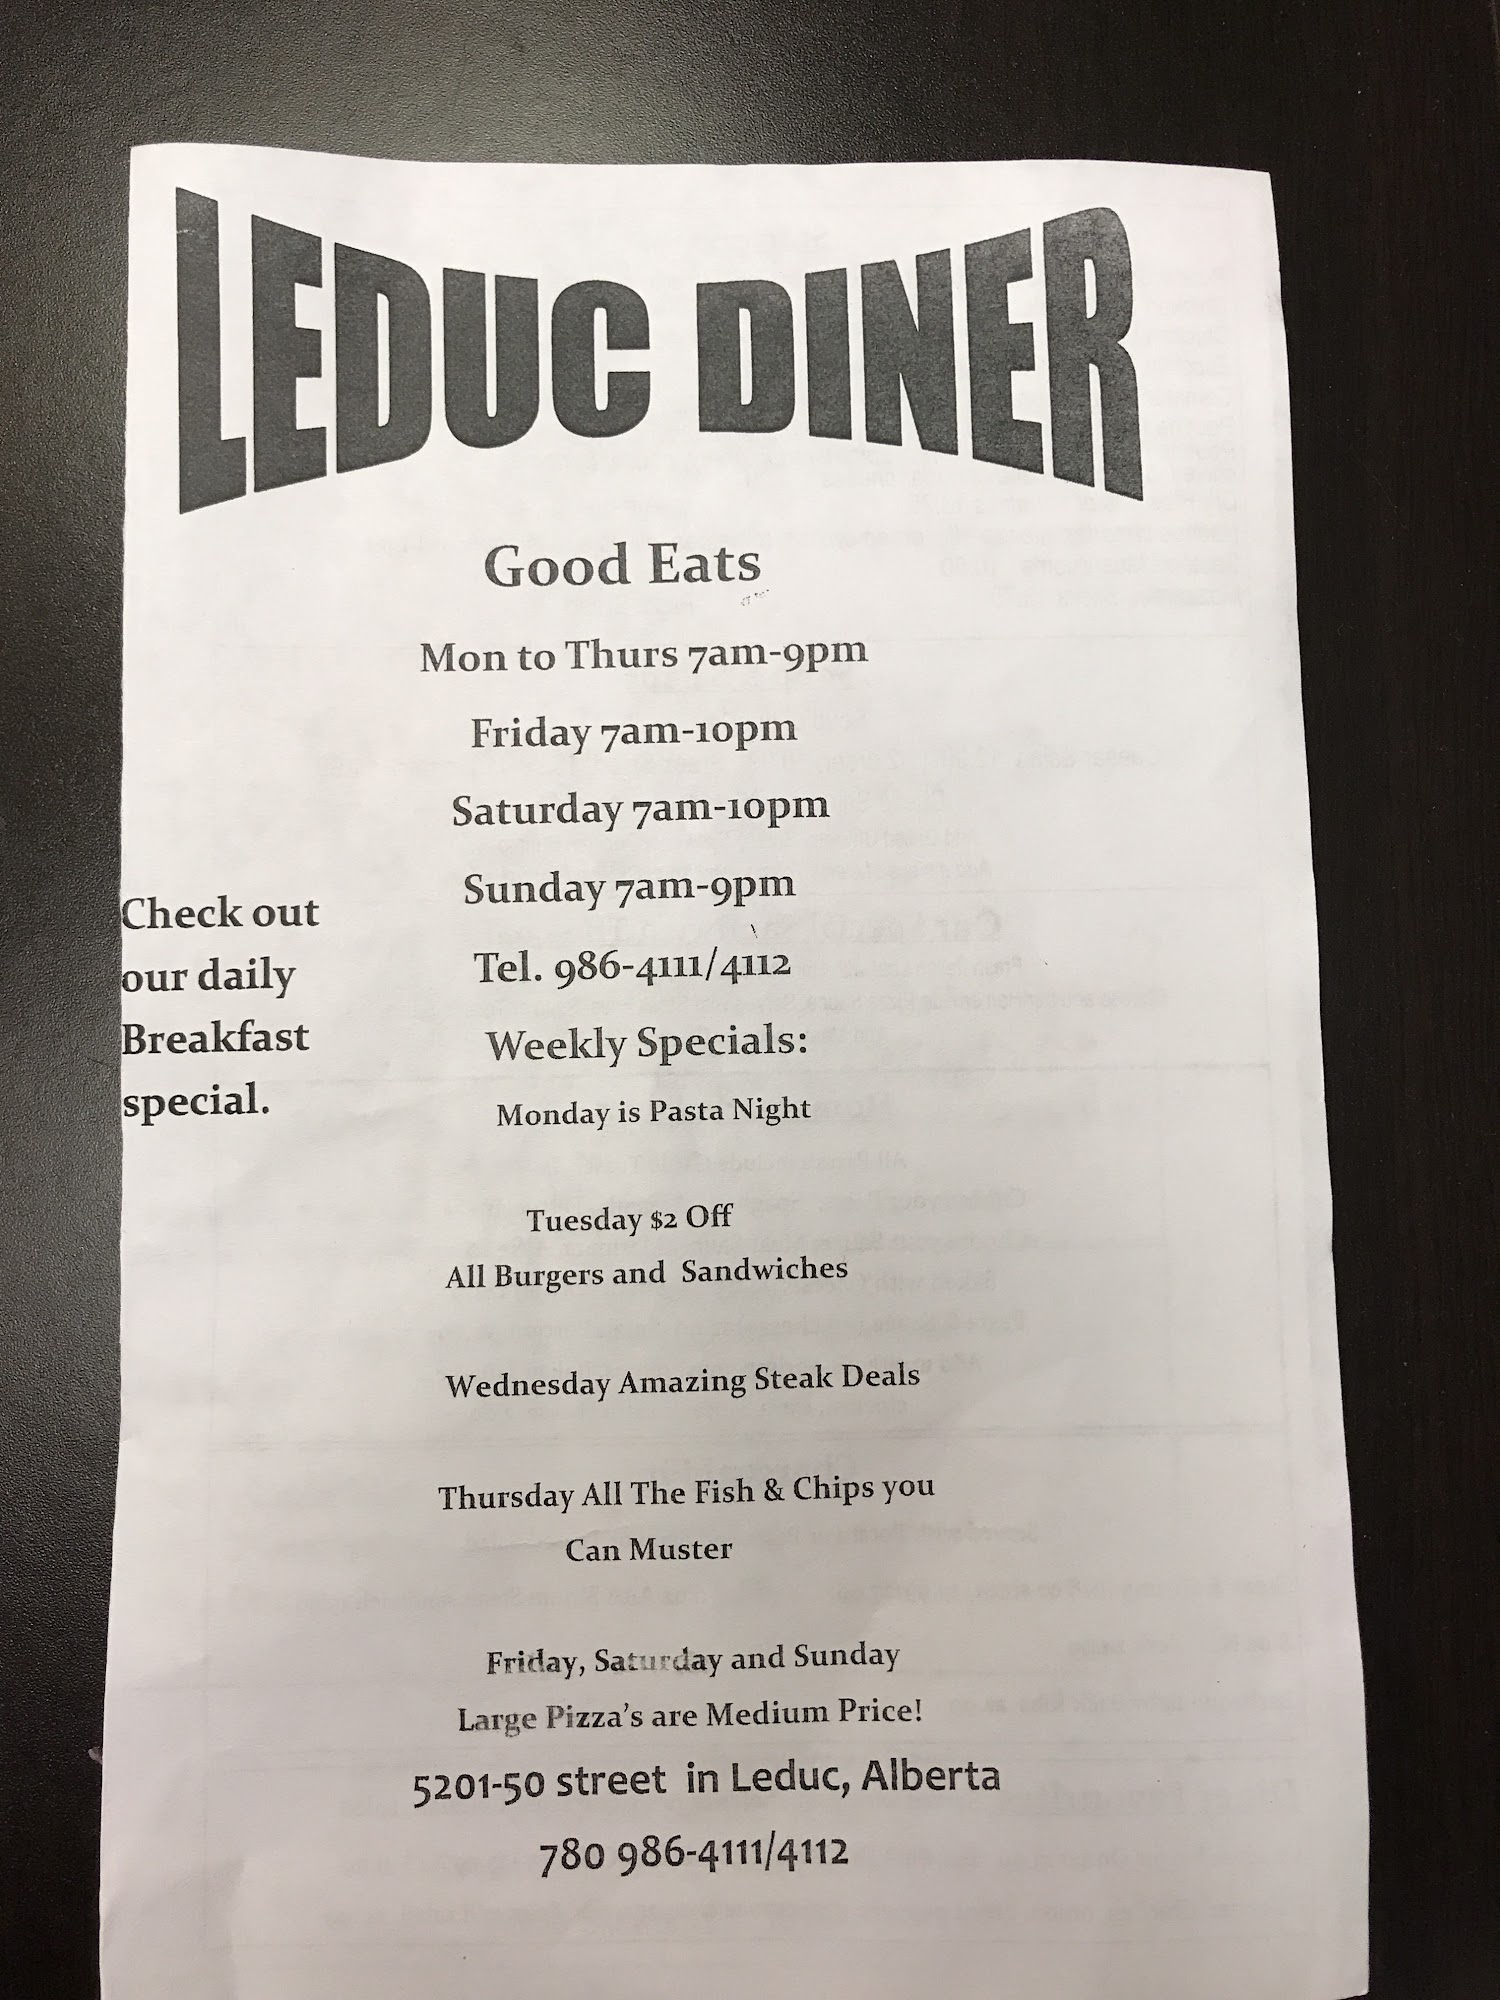 LEDUC DINER
Good Eats
Mon to Thurs 7am-9pm
Friday 7am-10pm
Saturday 7am-10pm
Sunday 7am-9pm
Tel. 986-4111/4112
Check out
our daily
Breakfast
special.
Weekly Specials:
Monday is Pasta Night
Tuesday $2 Off
All Burgers and Sandwiches
Wednesday Amazing Steak Deals
Thursday All The Fish & Chips you
Can Muster
Friday, Saturday and Sunday
Large Pizza's are Medium Price!
5201-50 street in Leduc, Alberta
780 986-4111/4112